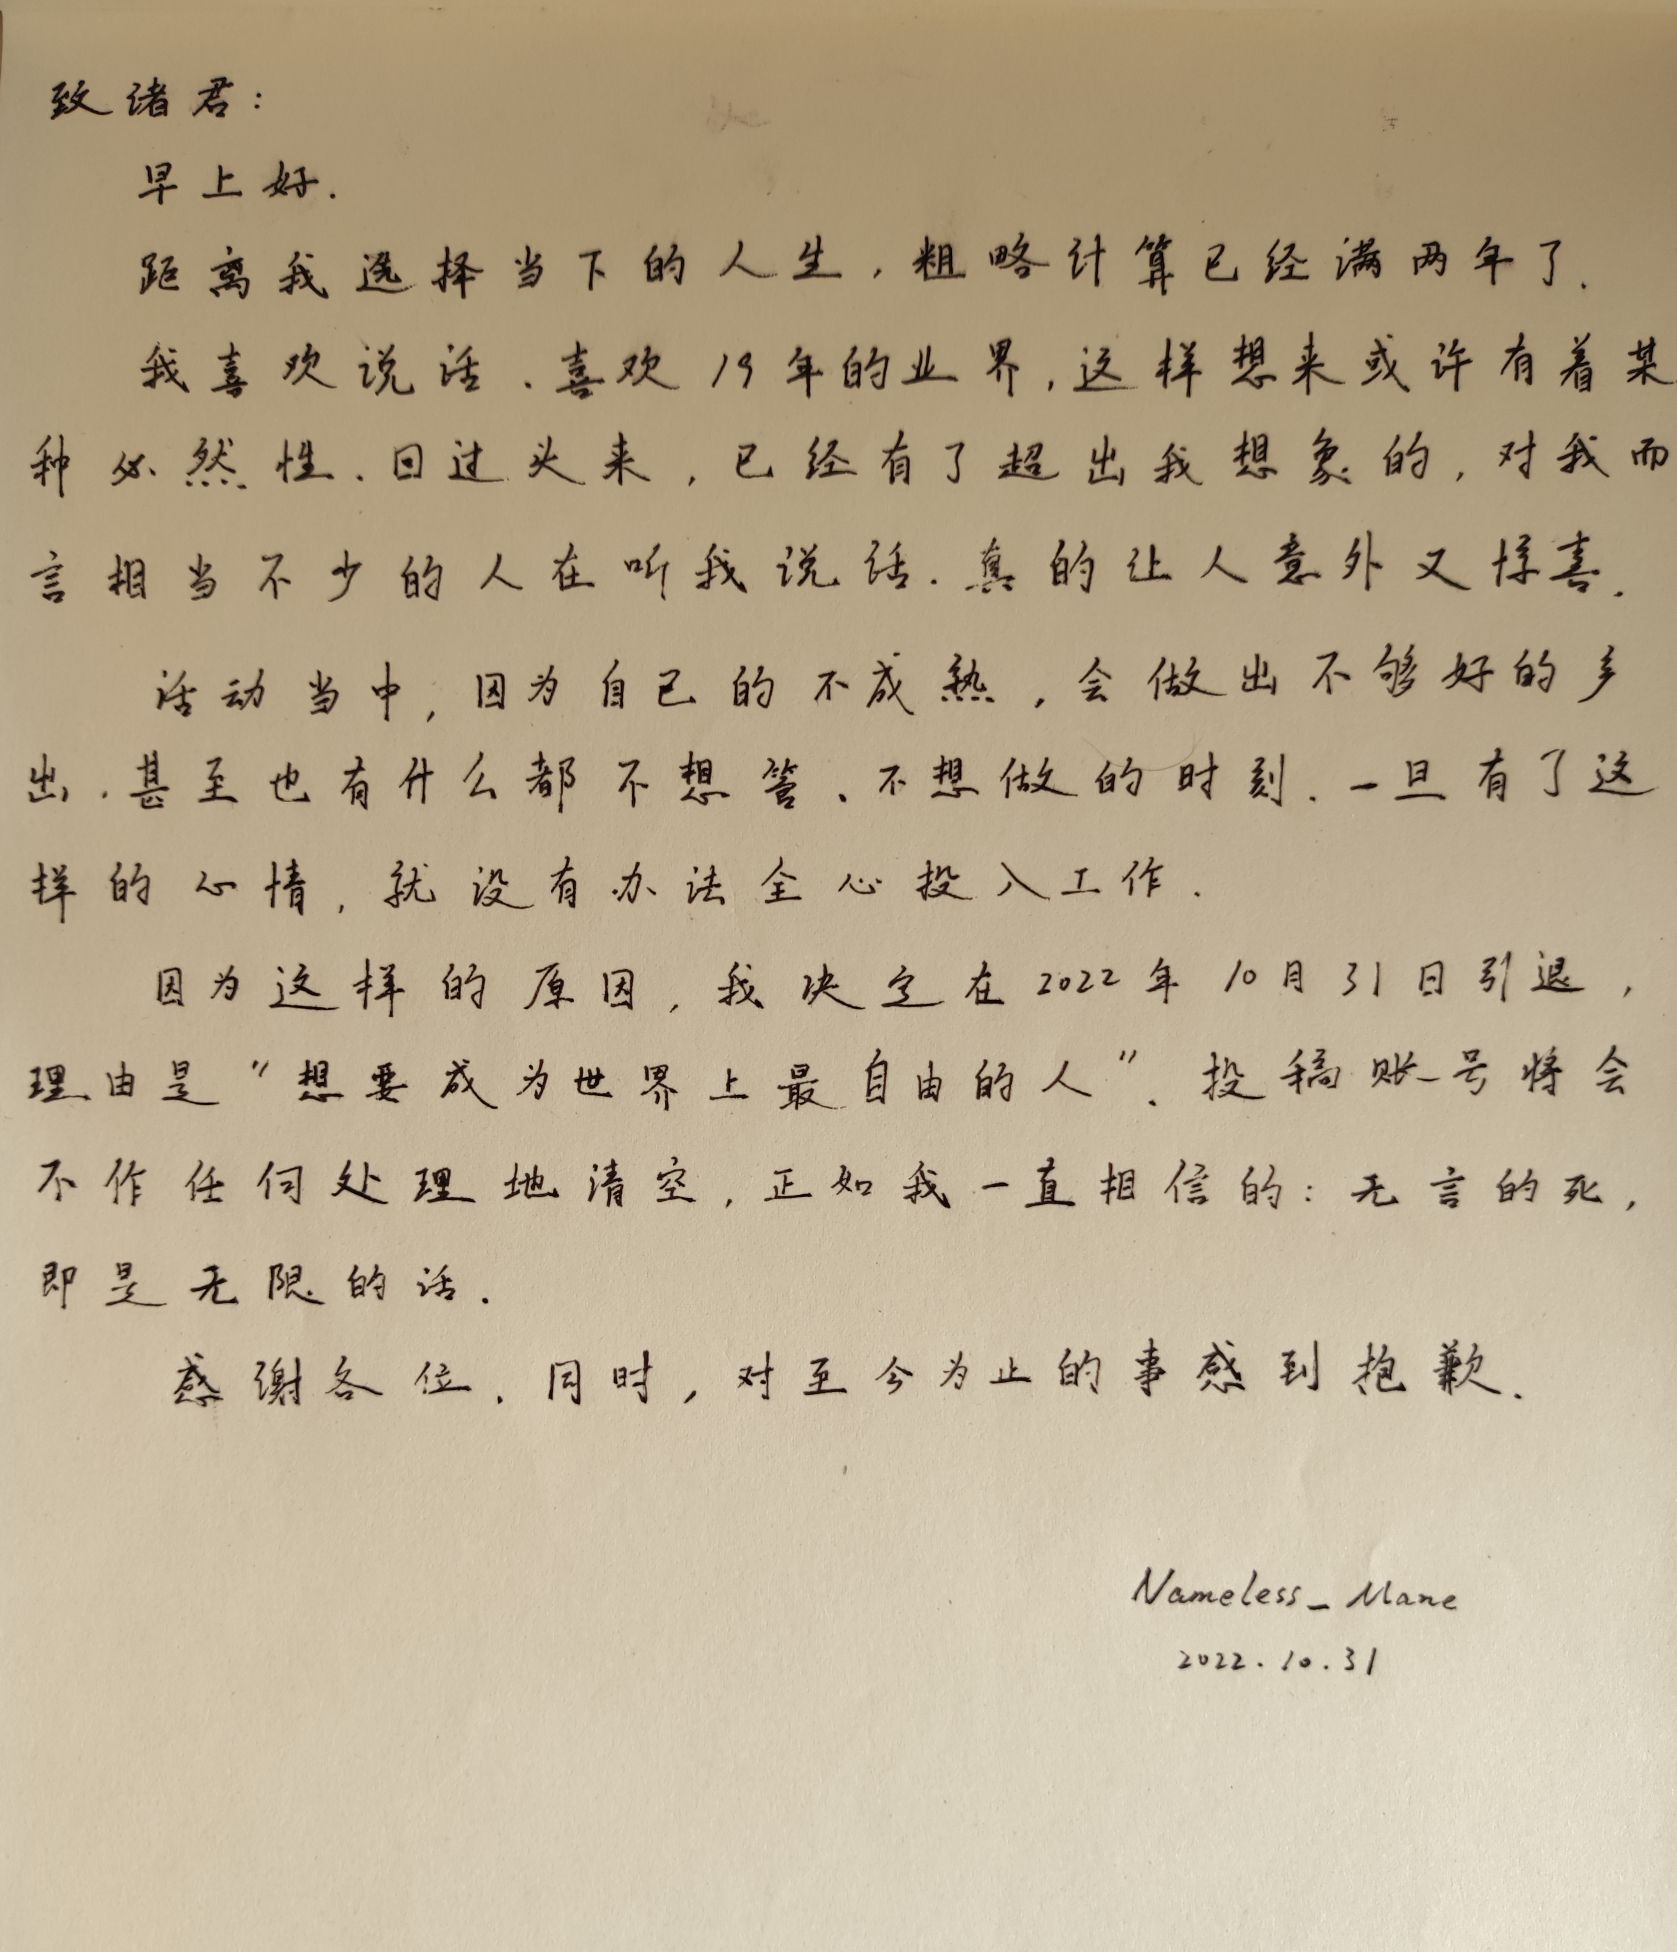 致诸君：
早上好.
距离我选择当下的人生，粗略计算已经满两年了.
我喜欢说话、喜欢19年的业界，这样想来或许有着某
种必然性.回过头来，已经有了超出我想象的，对我而
言相当不少的人在听我说话.真的让人意外又惊喜.
活动当中，因为自己的不成熟，会做出不够好的
出.甚至也有什么都不想管、不想做的时刻.一旦有了这
样的心情，就没有办法全心投入工作.
因为这样的原因，我决定在2022年10月31日引退，
理由是"想要成为世界上最自由的人".投稿账号将会
不作任何处理地清空，正如我一直相信的：无言的死，
即是无限的话.
感谢各位.同时，对至今为止的事感到抱歉.
Nameless_Mane
2022.10.31